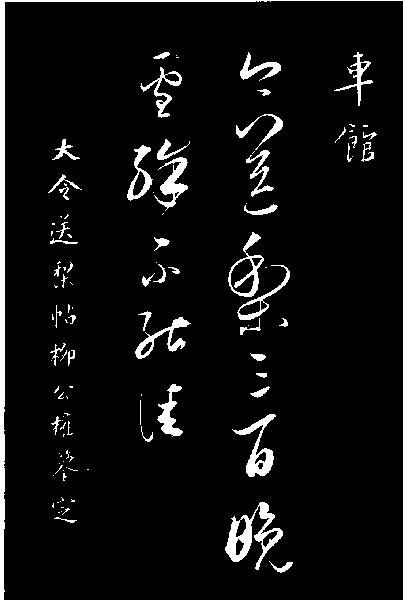 車館
今送梨三百晚
雪殊不能佳
大令送梨帖柳公權定